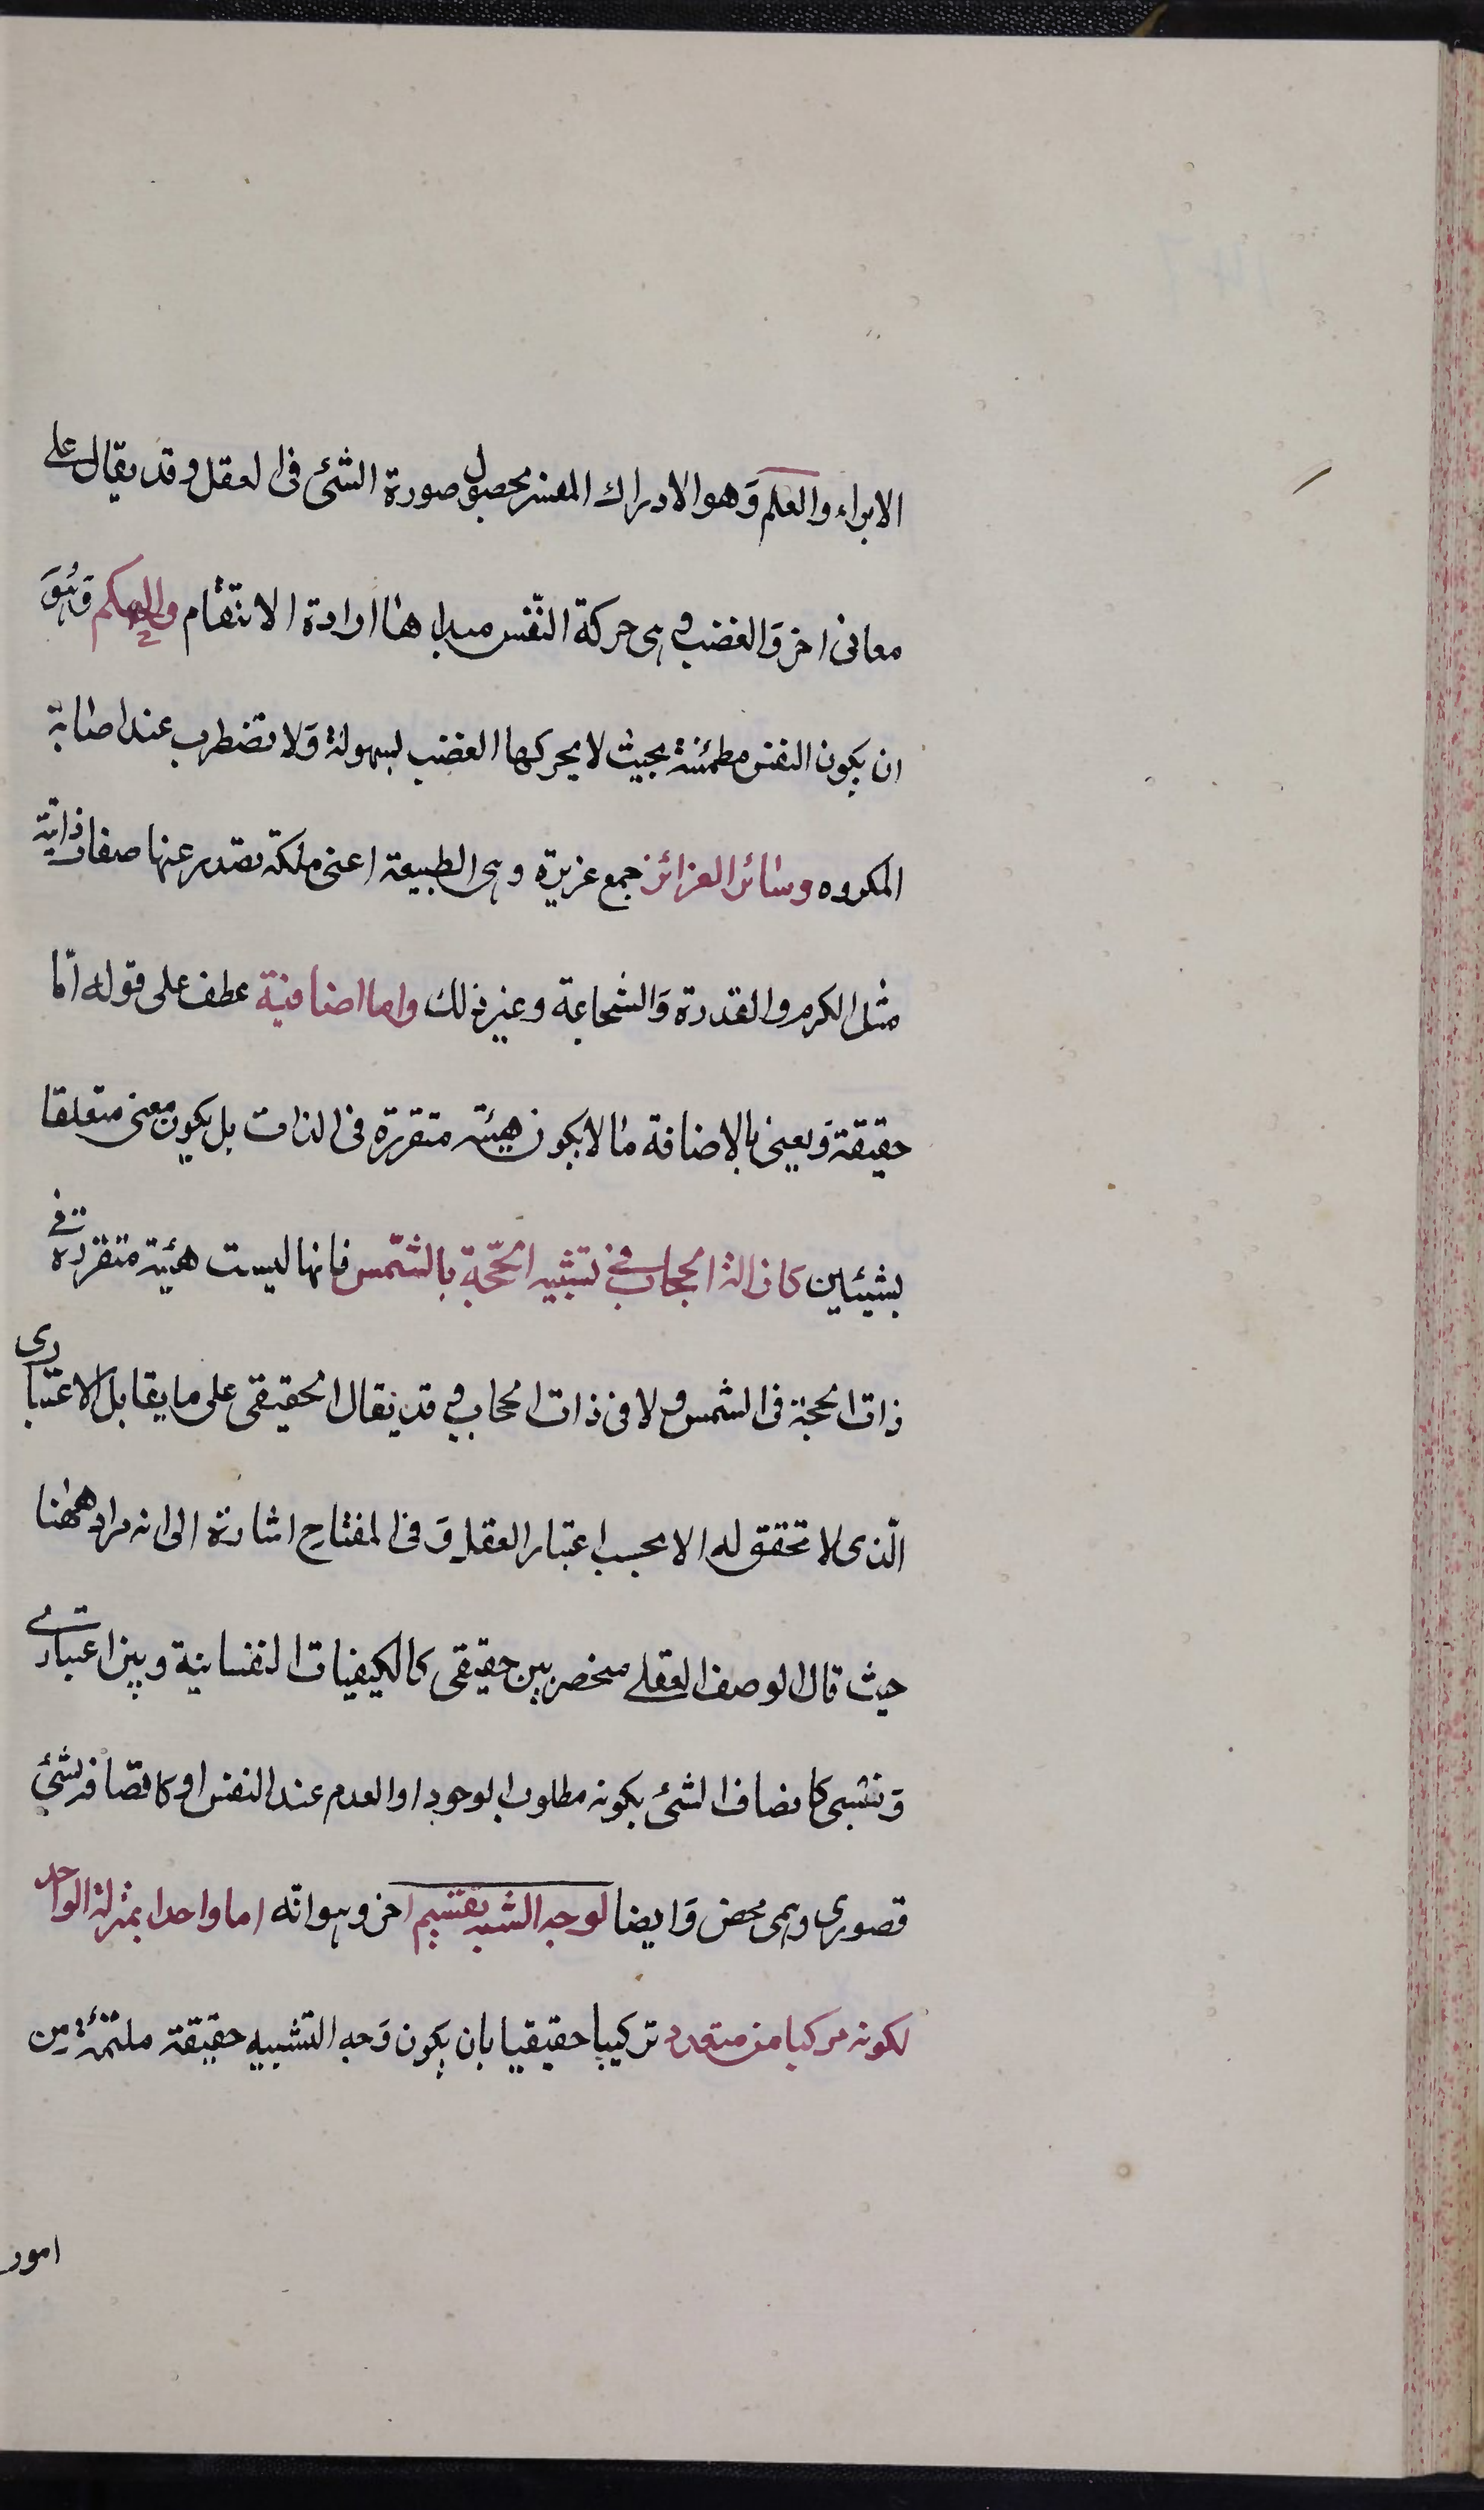 الابراء والعلم وَهو الادراك المفسر بحصول صورة الشئ فى العقل وقد يقال على
معانى اخر وَالغضب وهى حركة النّفس مبداها ارادة الانتقام والحكم وَهُوَ
ان يكون النفس مطمئنة بحيث لا يحركها الغضب بسهولة وَلا تضطرب عند اصابة
المكروه وسائر الغرائز جمع غريزة وهى الطبيعة اعنى ملكة تصدر عنها صفات ذاتية
مثل الكرم والقدرة وَالشجاعة وغير ذلك واما اضافية عطف على قوله امّا
حقيقة وَيعنى بالاضافة ما لا يكون هيئة متقررة فى الذات بل يكون معنى متعلقا
بشيئين كازالة الحجاب فى تشبيه الحجّة بالشّمس فانها ليست هيئة متقررة فى
ذات الحجة فى الشمس ولا فى ذات الحجاب وقد يقال الحقيقى على ما يقابل الاعتبارى
الّذى لا تحقق له الا بحسب اعتبار العقل وَفى المفتاح اشارة الى انه مراد ههنا
حيث قال الوصف العقلے منحصر بين حقيقى كالكيفيات النفسانية وبين اعتبارے
وَنسبى كاتصاف الشئ بكونه مطلوب الوجود او العدم عند النفس او كاتصافه بشئ
تصورى وهمى محض وَايضا لوجه الشبه تقسيم اخر وهو انّه اما واحد اما بمنزلة الواحد
لكونه مركبا من متعدد تركيبا حقيقيا بان يكون وَجه التشبيه حقيقة ملتئمة من
امور